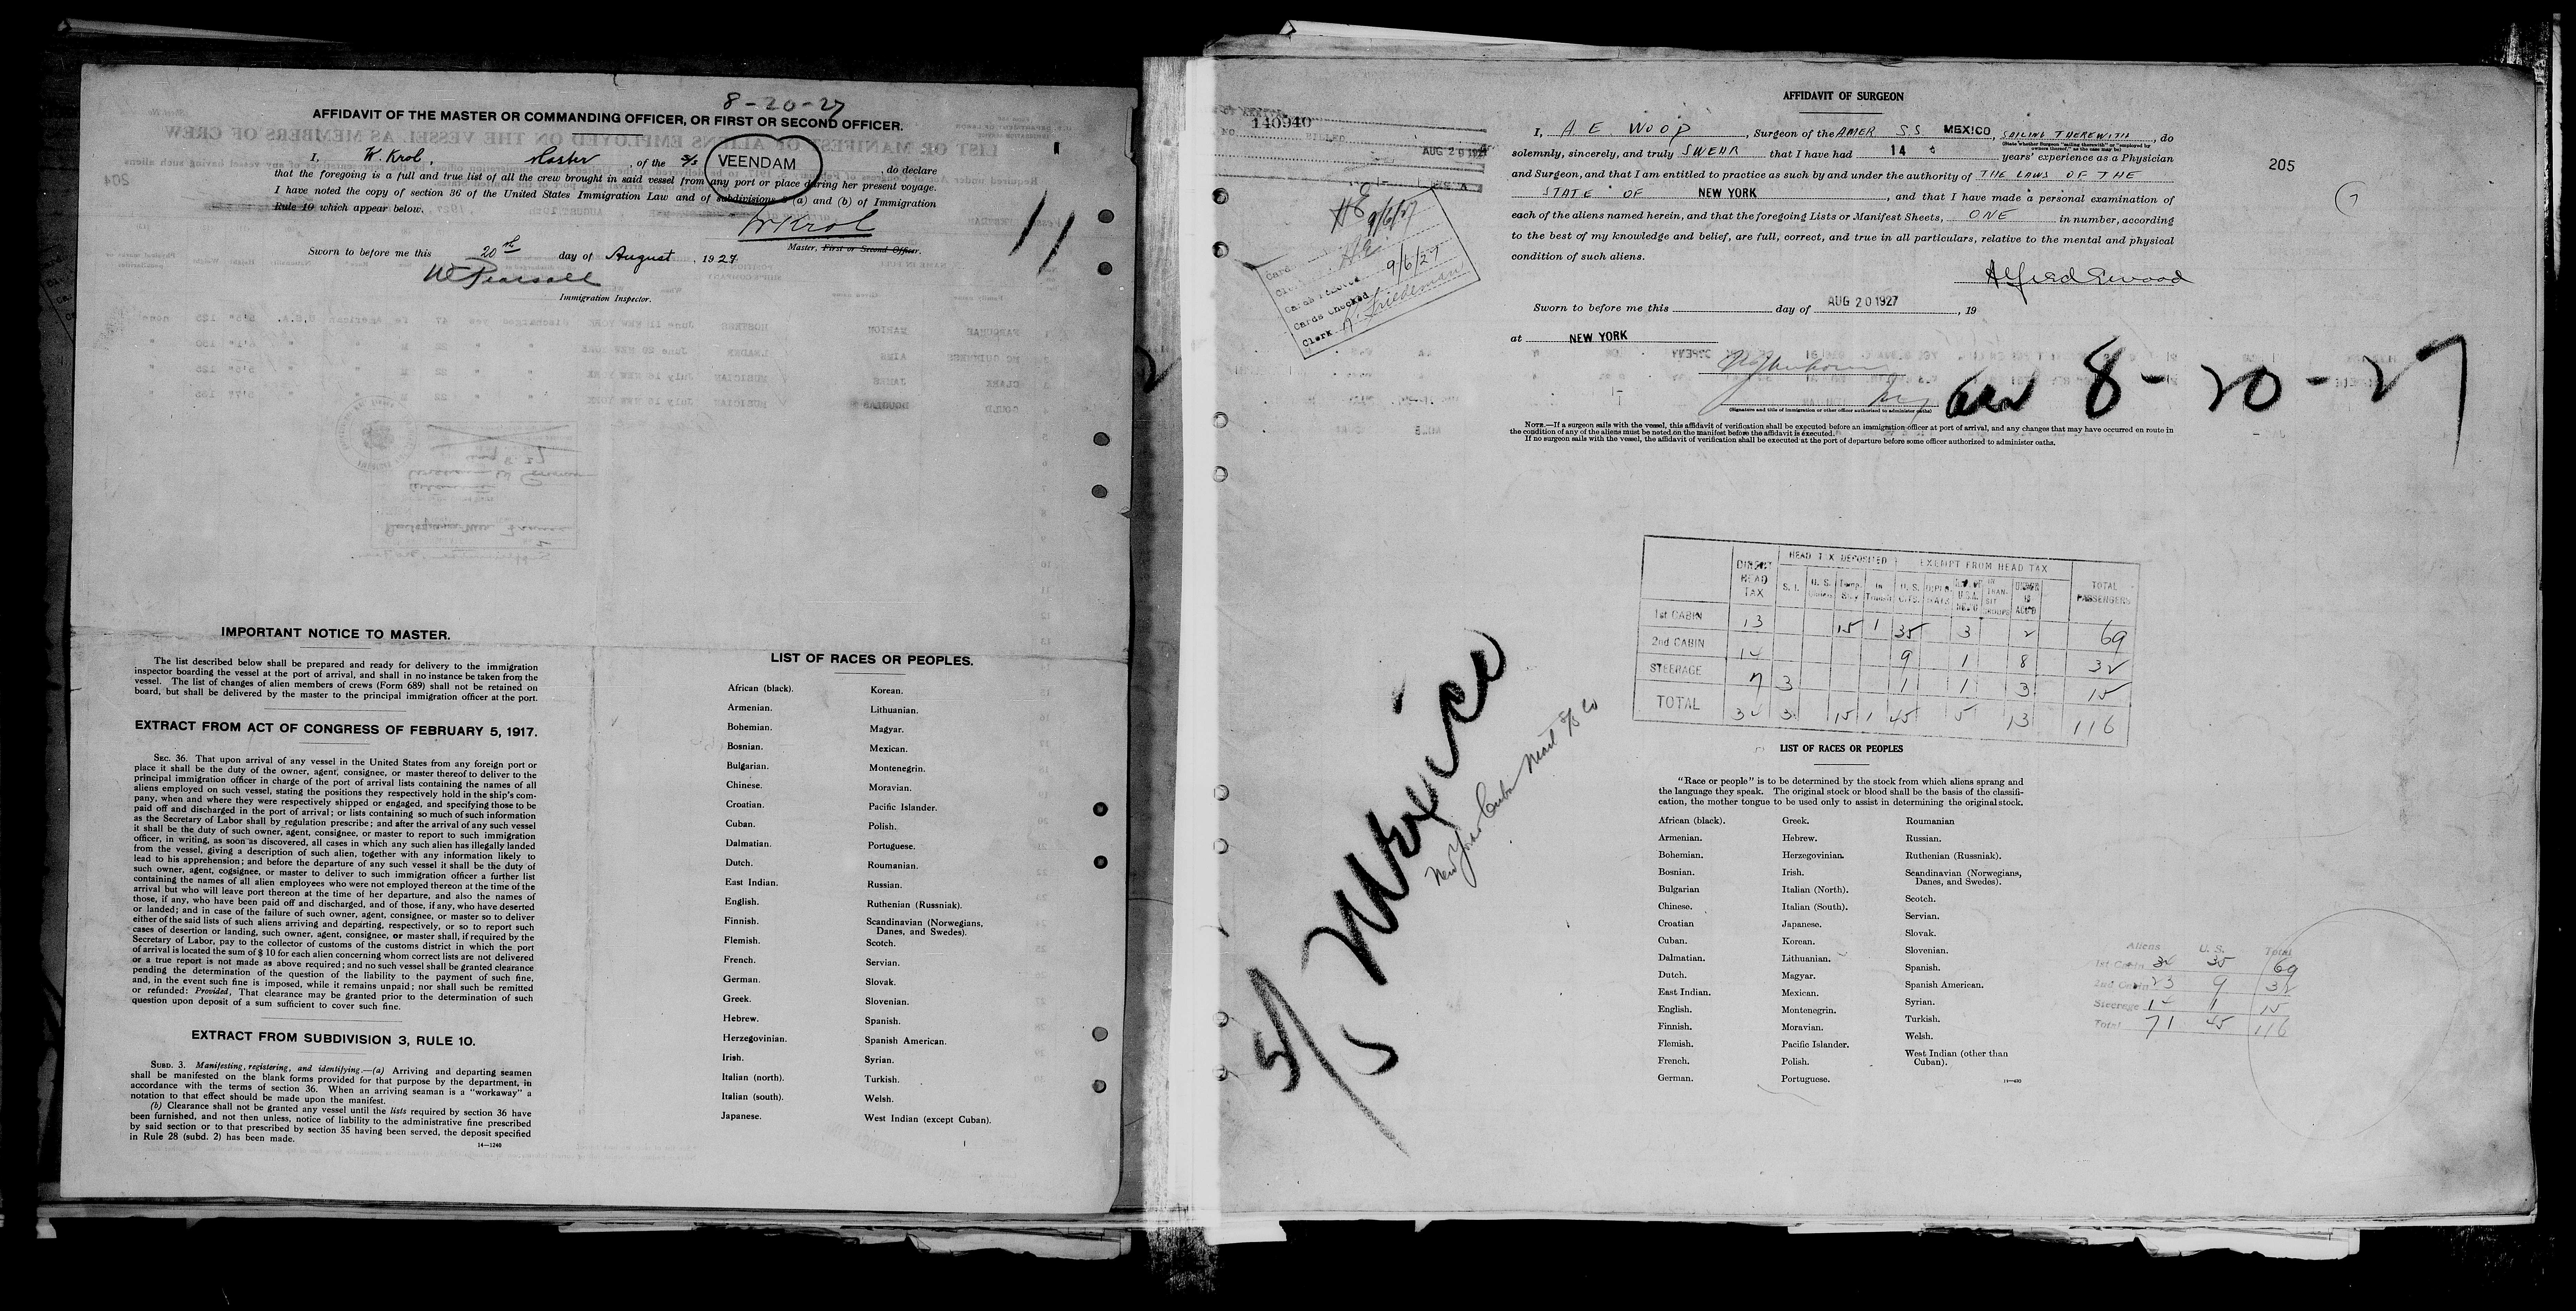 8-20-27
AFFIDAVIT OF THE MASTER OR COMMANDING OFFICER, OR FIRST OR SECOND OFFICER.
I, W. Krol, Master, of the S/S VEENDAM, do declare
that the foregoing is a full and true list of all the crew brought in said vessel from any port or place during her present voyage.
I have noted the copy of section 36 of the United States Immigration Law and of subdivisions (a) and (b) of Immigration
Rule 10 which appear below.
W Krol
Master, First or Second Officer.
Sworn to before me this 20th day of August, 1927
W Pearsall
Immigration Inspector.
11
IMPORTANT NOTICE TO MASTER.
The list described below shall be prepared and ready for delivery to the immigration
inspector boarding the vessel at the port of arrival, and shall in no instance be taken from the
vessel. The list of changes of alien members of crews (Form 689) shall not be retained on
board, but shall be delivered by the master to the principal immigration officer at the port.
EXTRACT FROM ACT OF CONGRESS OF FEBRUARY 5, 1917.
SEC. 36. That upon arrival of any vessel in the United States from any foreign port or
place it shall be the duty of the owner, agent, consignee, or master thereof to deliver to the
principal immigration officer in charge of the port of arrival lists containing the names of all
aliens employed on such vessel, stating the positions they respectively hold in the ship's com-
pany, when and where they were respectively shipped or engaged, and specifying those to be
paid off and discharged in the port of arrival; or lists containing so much of such information
as the Secretary of Labor shall by regulation prescribe; and after the arrival of any such vessel
it shall be the duty of such owner, agent, consignee, or master to report to such immigration
officer, in writing, as soon as discovered, all cases in which any such alien has illegally landed
from the vessel, giving a description of such alien, together with any information likely to
lead to his apprehension; and before the departure of any such vessel it shall be the duty of
such owner, agent, cogsignee, or master to deliver to such immigration officer a further list
containing the names of all alien employees who were not employed thereon at the time of the
arrival but who will leave port thereon at the time of her departure, and also the names of
those, if any, who have been paid off and discharged, and of those, if any, who have deserted
or landed; and in case of the failure of such owner, agent, consignee, or master so to deliver
either of the said lists of such aliens arriving and departing, respectively, or so to report such
cases of desertion or landing, such owner, agent, consignee, or master shall, if required by the
Secretary of Labor, pay to the collector of customs of the customs district in which the port
of arrival is located the sum of $ 10 for each alien concerning whom correct lists are not delivered
or a true report is not made as above required; and no such vessel shall be granted clearance
pending the determination of the question of the liability to the payment of such fine,
and, in the event such fine is imposed, while it remains unpaid; nor shall such be remitted
or refunded: Provided, That clearance may be granted prior to the determination of such
question upon deposit of a sum sufficient to cover such fine.
EXTRACT FROM SUBDIVISION 3, RULE 10.
SUBD. 3. Manifesting, registering, and identifying.—(a) Arriving and departing seamen
shall be manifested on the blank forms provided for that purpose by the department, in
accordance with the terms of section 36. When an arriving seaman is a "workaway" a
notation to that effect should be made upon the manifest.
(b) Clearance shall not be granted any vessel until the lists required by section 36 have
been furnished, and not then unless, notice of liability to the administrative fine prescribed
by said section or to that prescribed by section 35 having been served, the deposit specified
in Rule 28 (subd. 2) has been made.
14—1240
LIST OF RACES OR PEOPLES.
African (black).
Armenian.
Bohemian.
Bosnian.
Bulgarian.
Chinese.
Croatian.
Cuban.
Dalmatian.
Dutch.
East Indian.
English.
Finnish.
Flemish.
French.
German.
Greek.
Hebrew.
Herzegovinian.
Irish.
Italian (north).
Italian (south).
Japanese.
Korean.
Lithuanian.
Magyar.
Mexican.
Montenegrin.
Moravian.
Pacific Islander.
Polish.
Portuguese.
Roumanian.
Russian.
Ruthenian (Russniak).
Scandinavian (Norwegians,
Danes, and Swedes).
Scotch.
Servian.
Slovak.
Slovenian.
Spanish.
Spanish American.
Syrian.
Turkish.
Welsh.
West Indian (except Cuban).
140940
AUG 20 1927
9/6/27
Cards Checked 9/6/27
Clerk Friedeman
AFFIDAVIT OF SURGEON
I, A E. WOOD, Surgeon of the AMER SS MEXICO, SAILING THEREWITH, do
(State whether Surgeon "sailing therewith" or "employed by
owners thereof," as the case may be)
solemnly, sincerely, and truly SWEAR that I have had 14 years' experience as a Physician
and Surgeon, and that I am entitled to practice as such by and under the authority of THE LAWS OF THE
STATE OF NEW YORK, and that I have made a personal examination of
each of the aliens named herein, and that the foregoing Lists or Manifest Sheets, ONE in number, according
to the best of my knowledge and belief, are full, correct, and true in all particulars, relative to the mental and physical
condition of such aliens.
205
Alfred E Wood
Sworn to before me this day of AUG 20 1927, 19
at NEW YORK
(Signature and title of immigration or other officer authorized to administer oaths)
8-20-27
NOTE.—If a surgeon sails with the vessel, this affidavit of verification shall be executed before an immigration officer at port of arrival, and any changes that may have occurred en route in
the condition of any of the aliens must be noted on the manifest before the affidavit is executed.
If no surgeon sails with the vessel, the affidavit of verification shall be executed at the port of departure before some officer authorized to administer oaths.
DIRECT HEAD TAX HEAD TAX DEPOSITED EXEMPT FROM HEAD TAX TOTAL PASSENGERS
1st CABIN 13 15 1 35 3 2 69
2nd CABIN 14 9 1 8 32
STEERAGE 7 3 1 1 3 15
TOTAL 34 3 15 1 45 5 13 116
S/S Mexico
New York Cuba Mail S/S Co
LIST OF RACES OR PEOPLES
"Race or people" is to be determined by the stock from which aliens sprang and
the language they speak. The original stock or blood shall be the basis of the classifi-
cation, the mother tongue to be used only to assist in determining the original stock.
African (black).
Armenian.
Bohemian.
Bosnian.
Bulgarian
Chinese.
Croatian
Cuban.
Dalmatian.
Dutch.
East Indian.
English.
Finnish.
Flemish.
French.
German.
Greek.
Hebrew.
Herzegovinian.
Irish.
Italian (North).
Italian (South).
Japanese.
Korean.
Lithuanian.
Magyar.
Mexican.
Montenegrin.
Moravian.
Pacific Islander.
Polish.
Portuguese.
Roumanian
Russian.
Ruthenian (Russniak).
Scandinavian (Norwegians,
Danes, and Swedes).
Scotch.
Servian.
Slovak.
Slovenian.
Spanish.
Spanish American.
Syrian.
Turkish.
Welsh.
West Indian (other than
Cuban).
14—430
Aliens U. S. Total
1st Cabin 34 35 69
2nd Cabin 23 9 32
Steerage 14 1 15
Total 71 45 116